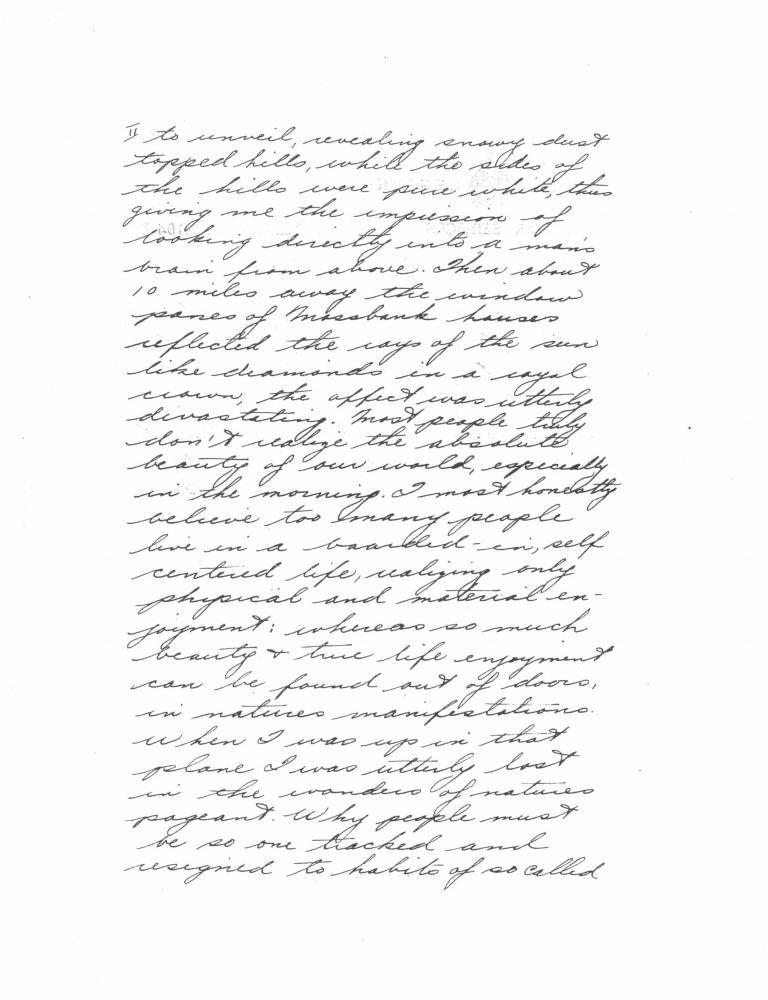 II to unveil, revealing snowy dust
topped hills, while the sides of
the hills were pure white, thus
giving me the impression of
looking directly into a man's
brain from above. Then about
10 miles away the window
panes of Mossbank houses
reflected the rays of the sun
like diamonds in a royal
crown, the affect was utterly
devastating. Most people truly
don't realize the absolute
beauty of our world, especially
in the morning. I most honestly
believe too many people
live in a boarded-in, self
centered life, realizing only
physical and material en-
joyment: whereas so much
beauty & true life enjoyment
can be found out of doors,
in natures manifestations.
When I was up in that
plane I was utterly lost
in the wonders of natures
pageant. Why people must
be so one tracked and
resigned to habits of so called